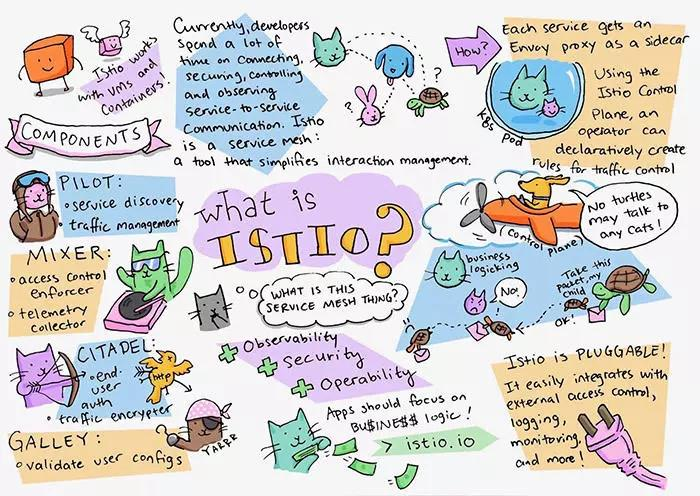 Istio works
with VMs and
Containers!
Currently, developers
spend a lot of
time on connecting,
securing, controlling
and observing
service-to-service
communication. Istio
is a service mesh:
a tool that simplifies interaction management.
?
?
HOW?
Each service gets an
Envoy proxy as a sidecar
K8s Pod
Using the
Istio Control
Plane, an
operator can
declaratively create
rules for traffic control
COMPONENTS
PILOT:
• service discovery
traffic management
MIXER:
• access control
enforcer
• telmetry
collector
CITADEL:
• end-
user
auth
• traffic encrypter
http
GALLEY:
• validate user configs
YARRR
what is
ISTIO?
WHAT IS THIS
SERVICE MESH THING?
+ Observability
+ Security
+ Operability
Apps should focus on
BU$INE$$ logic!
> istio.io
(control plane)
No turtles
may talk to
any cats!
business
logicking
NO!
Take this
packet, my
child
OK!
Istio is PLUGGABLE!
It easily integrates with
external access control,
logging,
monitoring,
and more!